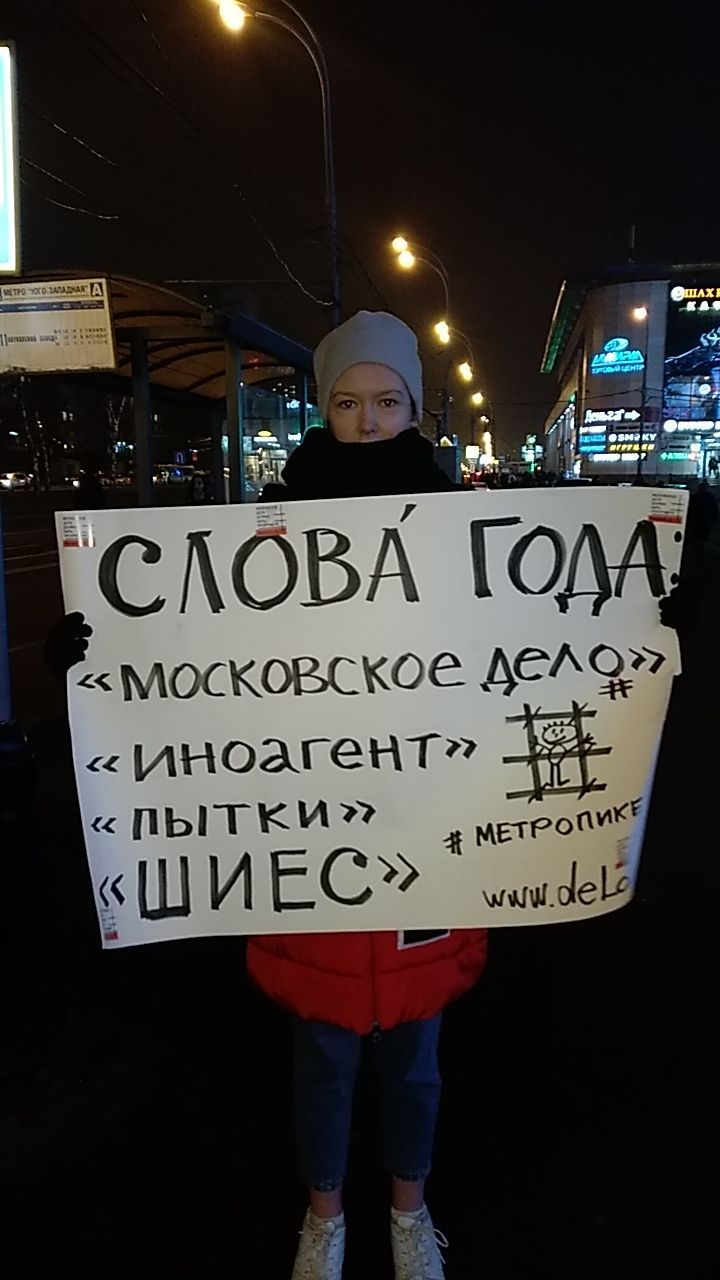 МЕТРО "ЮГО-ЗАПАДНАЯ" А
АДМИРАЛ
ТОРГОВЫЙ ЦЕНТР
Деньга
SMOKY
СЛОВА́ ГОДА:
«МОСКОВСКОЕ ДЕЛО»
#
«ИНОАГЕНТ»
«ПЫТКИ»
# МЕТРОПИКЕ
«ШИЕС»
www.delo